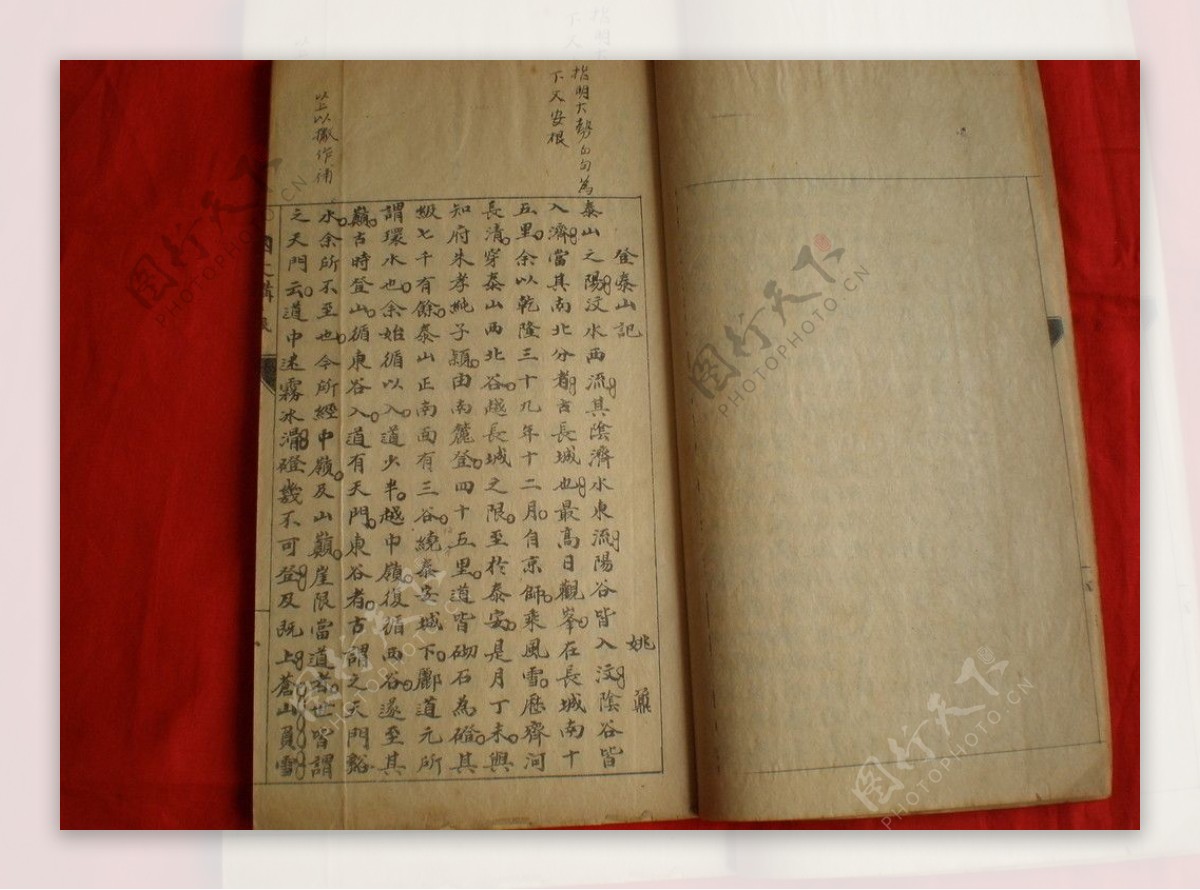 指明大勢句句為
下文安根
登泰山記
姚鼐
泰山之陽汶水西流其陰濟水東流陽谷皆入汶陰谷皆
入濟當其南北分者古長城也最高日觀峯在長城南十
五里余以乾隆三十九年十二月自京師乘風雪歷齊河
長清穿泰山西北谷越長城之限至於泰安是月丁未與
知府朱孝純子潁由南麓登四十五里道皆砌石為磴其
級七千有餘泰山正南面有三谷繞泰安城下酈道元所
謂環水也余始循以入道少半越中嶺復循西谷遂至其
巔古時登山循東谷入道有天門東谷者古謂之天門谿
水余所不至也今所經中嶺及山巔崖限當道者世皆謂
之天門云道中迷霧冰滑磴幾不可登及既上蒼山負雪
以上以作補
图行天下
PHOTOPHOTO.CN
图行天下
PHOTOPHOTO.CN
图行天下
PHOTOPHOTO.CN
图行天下
PHOTOPHOTO.CN